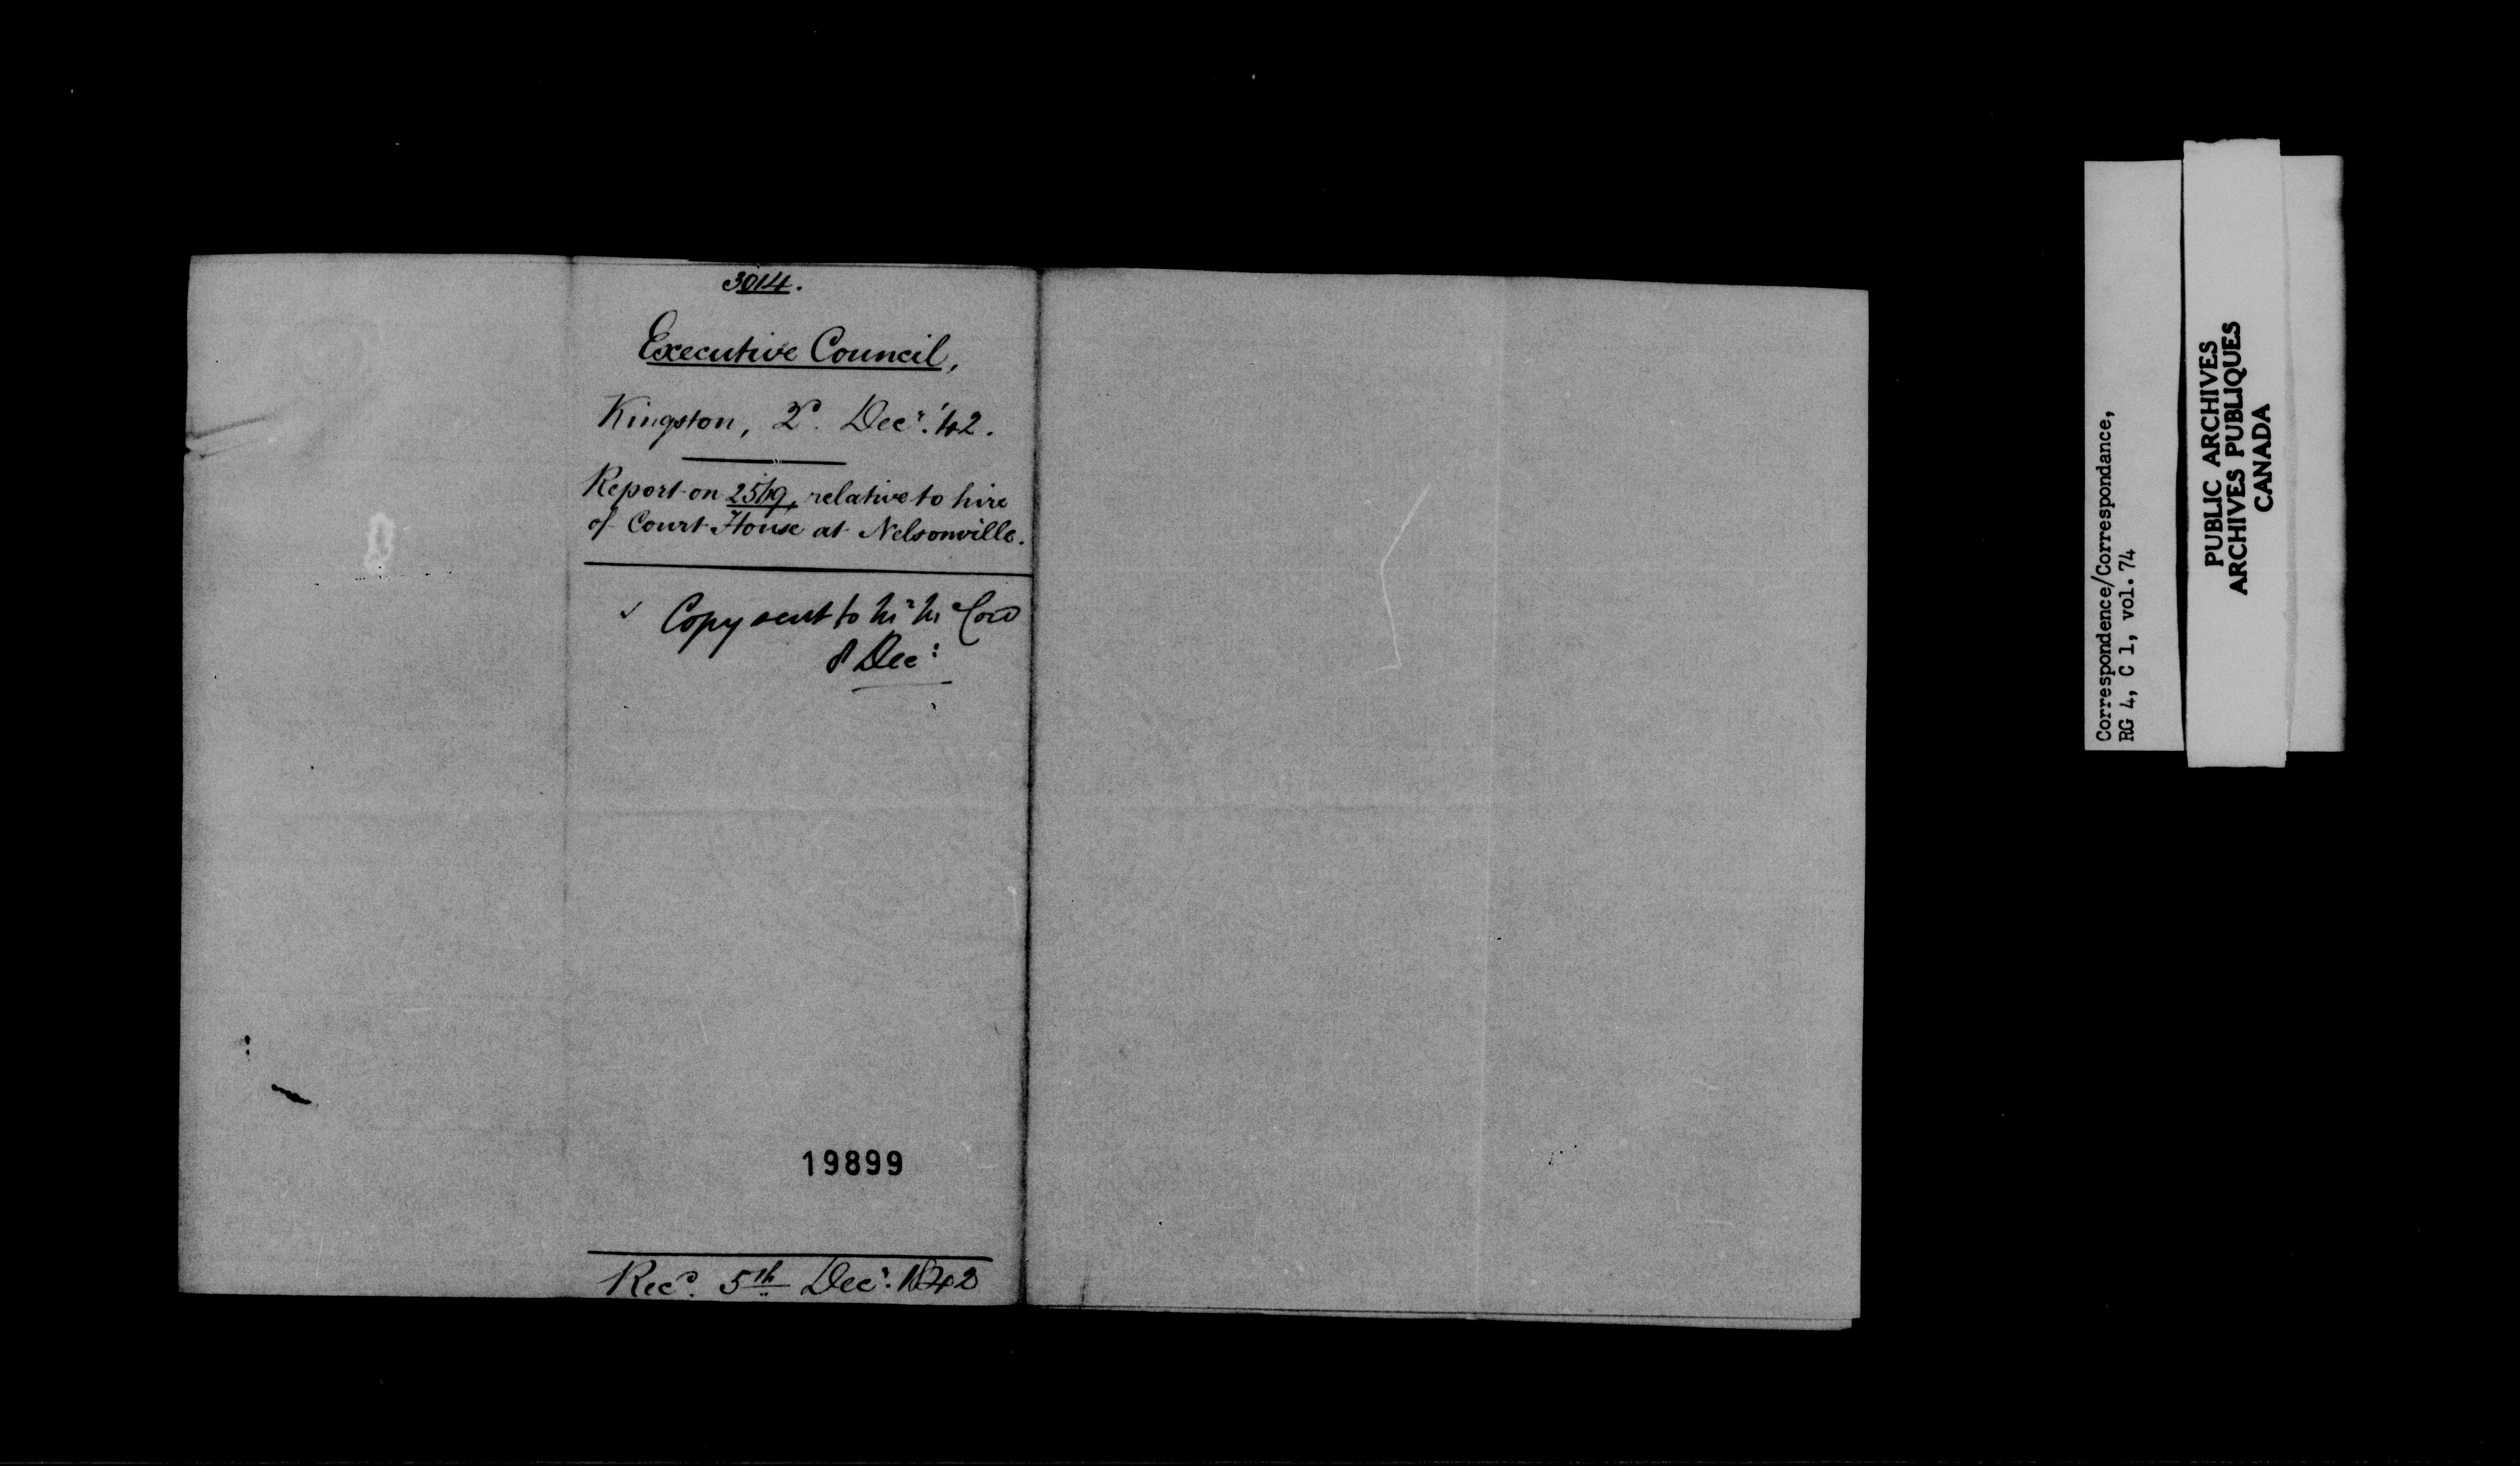 3014.
Executive Council,
Kingston, 2d. Decr. '42.
Report on 2519, relative to hire
of Court House at Nelsonville.
Copy sent to
8 Dec:
19899
Recd. 5th Decr. 1842
Correspondence/Correspondance,
RG 4, C 1, vol. 74
PUBLIC ARCHIVES
ARCHIVES PUBLIQUES
CANADA